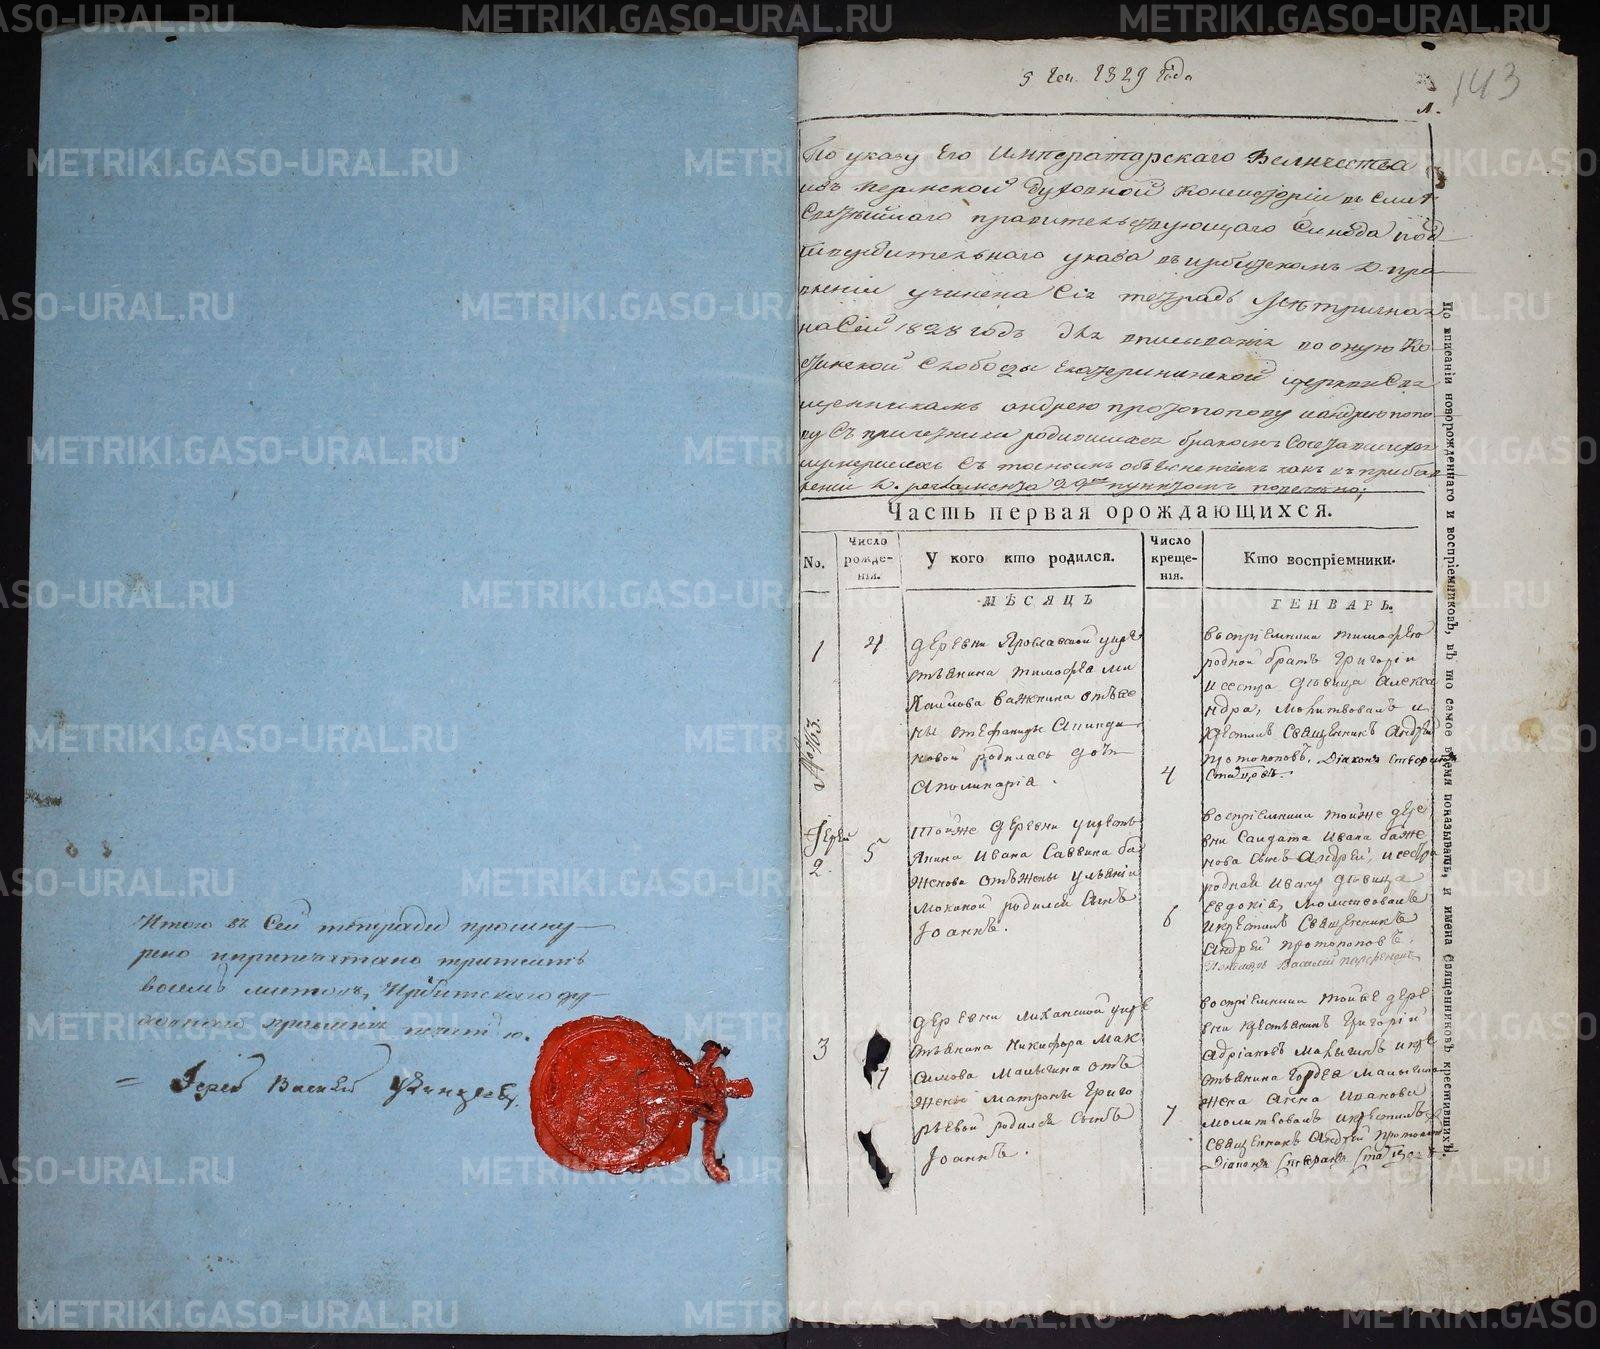 Итого въ сей тетради прошну-
рено перепечатано тритцать
восемь листовъ, Ирбитскаго ду-
ховнаго правленія печатью.
Іерей Василій
5 Ген. 1829 Года
143
л.
По указу Его Императорскаго Величества
изъ Пермской Духовной Консисторіи въ силу
Святѣйшаго правительствующаго Синода под-
твердительнаго указа въ ирбитскомъ д. пра-
вленіи учинена Сія тетрадь Метричная
на Сей 1828 годъ для вписыванія во оную
Слободы Екатерининской церкви Свя-
щенникамъ андрею протопопову и андрею попо-
ву Съ причетники родившихся бракомъ Сочетавшихся
и умершихъ Съ такимъ объясненіемъ какъ въ прибав-
леніи д. регламента 29мъ пунктомъ повелѣно;
Часть первая орождающихся.
No.
Число рожденія.
У кого кто родился.
Число крещенія.
Кто воспріемники.
МѢСЯЦЪ
ГЕНВАРЬ.
1
4
деревни Ярославской кре
стьянина тимофея ми
хаилова бажения отъ же
ны стефаниды
родилась дочь
Аполинарія.
4
воспріемники тимофею
родной братъ григорій
и сестра дѣвица алекса
ндра, молитвовалъ и
крестилъ Священникъ Андрей
протопоповъ. Діаконъ
Іерей
2
5
тойже деревни кресть
янина Ивана Саввина ба
женова отъ жены уліяніи
родился сынъ
Іоаннъ.
6
воспріемники тойже дере
вни Салдата Ивана баже
нова сынъ Андрей, и сестра
родная Ивану дѣвица
евдокія, молитвовалъ
и крестилъ Священникъ
Андрей протопоповъ.
Василій
3
7
деревни кре
стьянина Никифора Мак
симова Малыгина отъ
жены матроны григо
рьевой родился сынъ
Іоаннъ.
7
воспріемники тойже дере
вни крестьянинъ григорій
адріановъ малыгинъ и кре
стьянина Малыгина
жена Анна Иванова
молитвовалъ и крестилъ
священникъ Андрей протопоповъ
Діаконъ
По вписаніи новорожденнаго и воспріемниковъ, въ то самое время показывать, и имена священниковъ крестившихъ.
METRIKI.GASO-URAL.RU